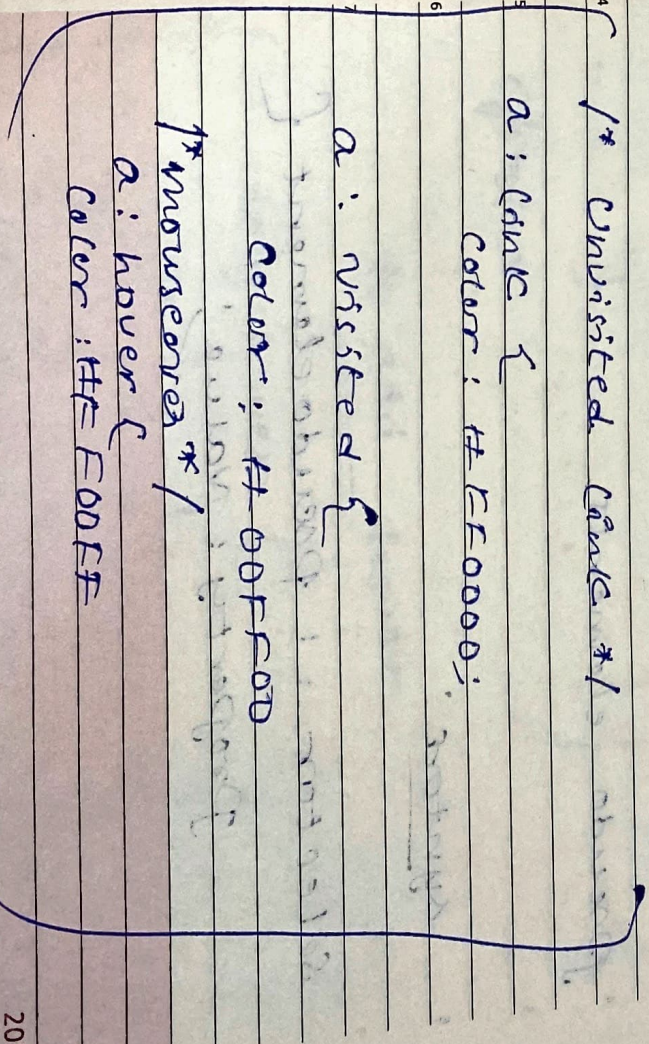 /* unvisited link */
a : link {
color : #FF0000;
a : visited {
color : #00FF00
/* mouseover */
a : hover {
color : #FF00FF
4
5
6
7
20